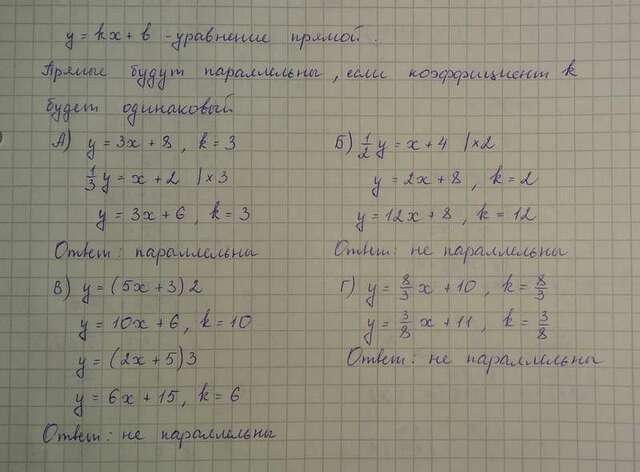 y = kx + b - уравнение прямой.
Прямые будут параллельны, если коэффициент k
будет одинаковый.
А) y = 3x + 8, k = 3
1/3 y = x + 2 |×3
y = 3x + 6, k = 3
Ответ: параллельны
Б) 1/2 y = x + 4 |×2
y = 2x + 8, k = 2
y = 12x + 8, k = 12
Ответ: не параллельны
В) y = (5x + 3) 2
y = 10x + 6, k = 10
y = (2x + 5) 3
y = 6x + 15, k = 6
Ответ: не параллельны
Г) y = 8/3 x + 10, k = 8/3
y = 3/8 x + 11, k = 3/8
Ответ: не параллельны